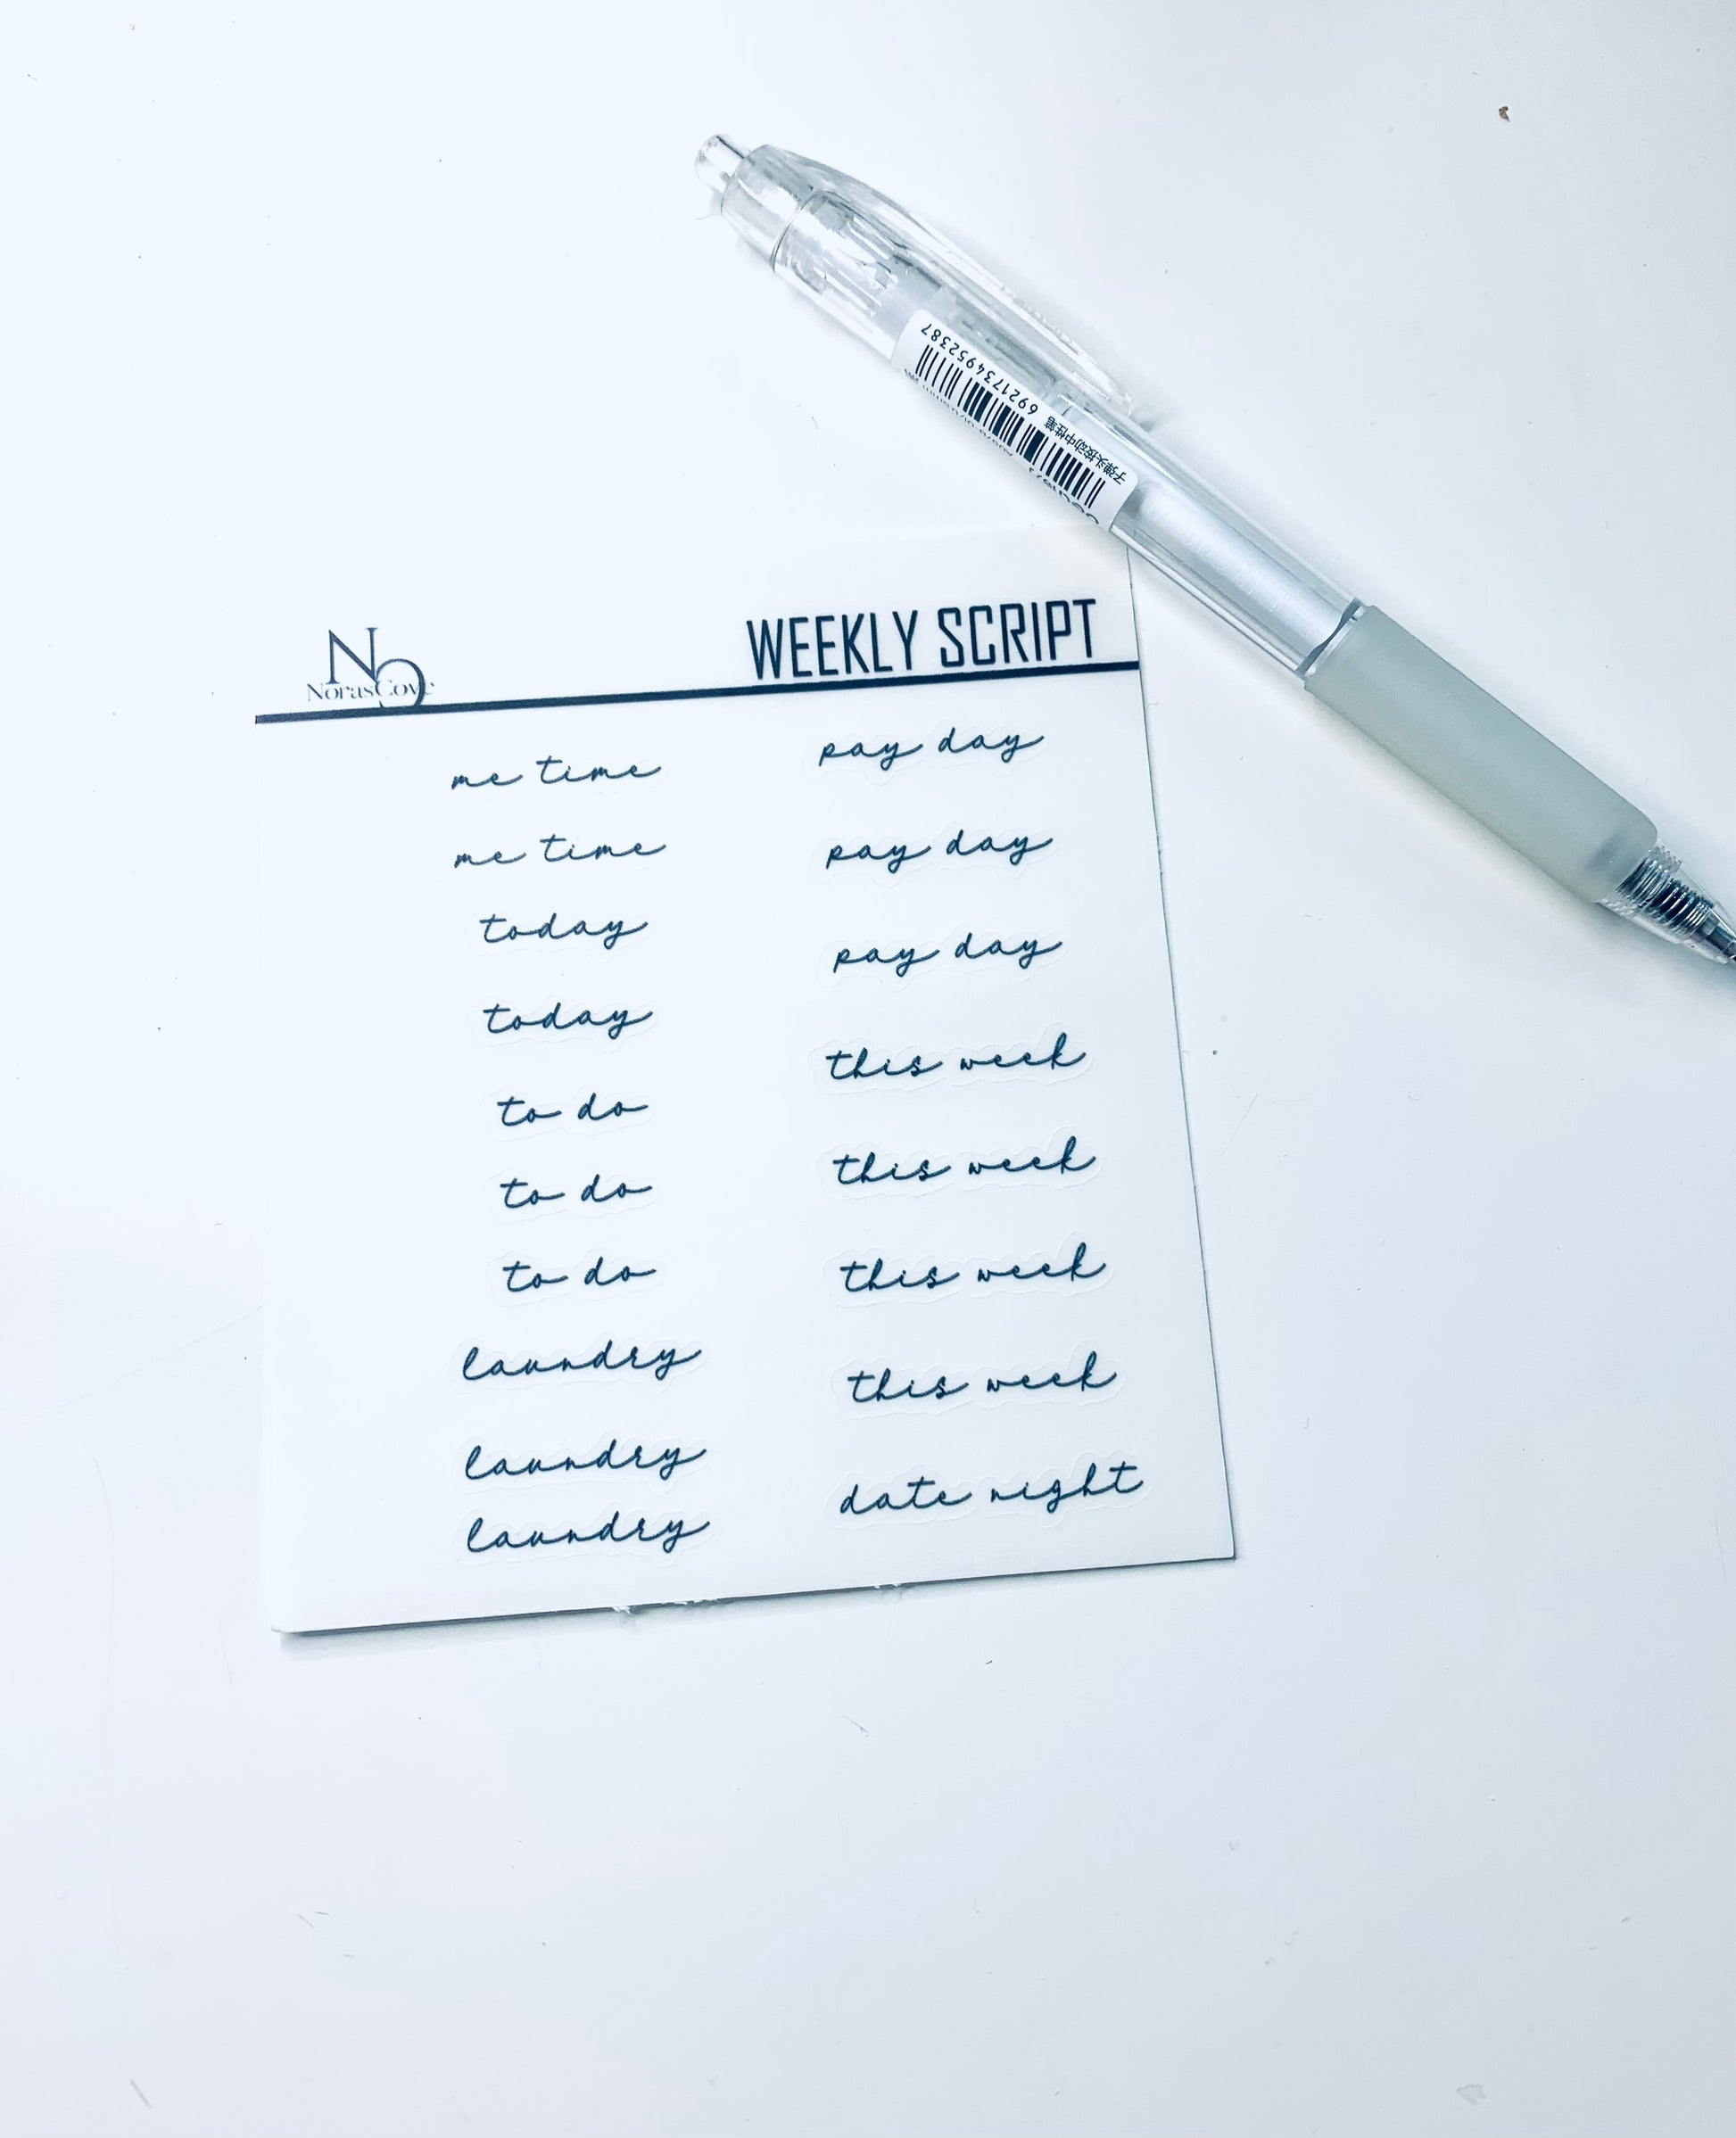 6921734952387
子弹头按动中性笔
WEEKLY SCRIPT
NorasCove
me time
me time
today
today
to do
to do
to do
laundry
laundry
laundry
pay day
pay day
pay day
this week
this week
this week
this week
date night